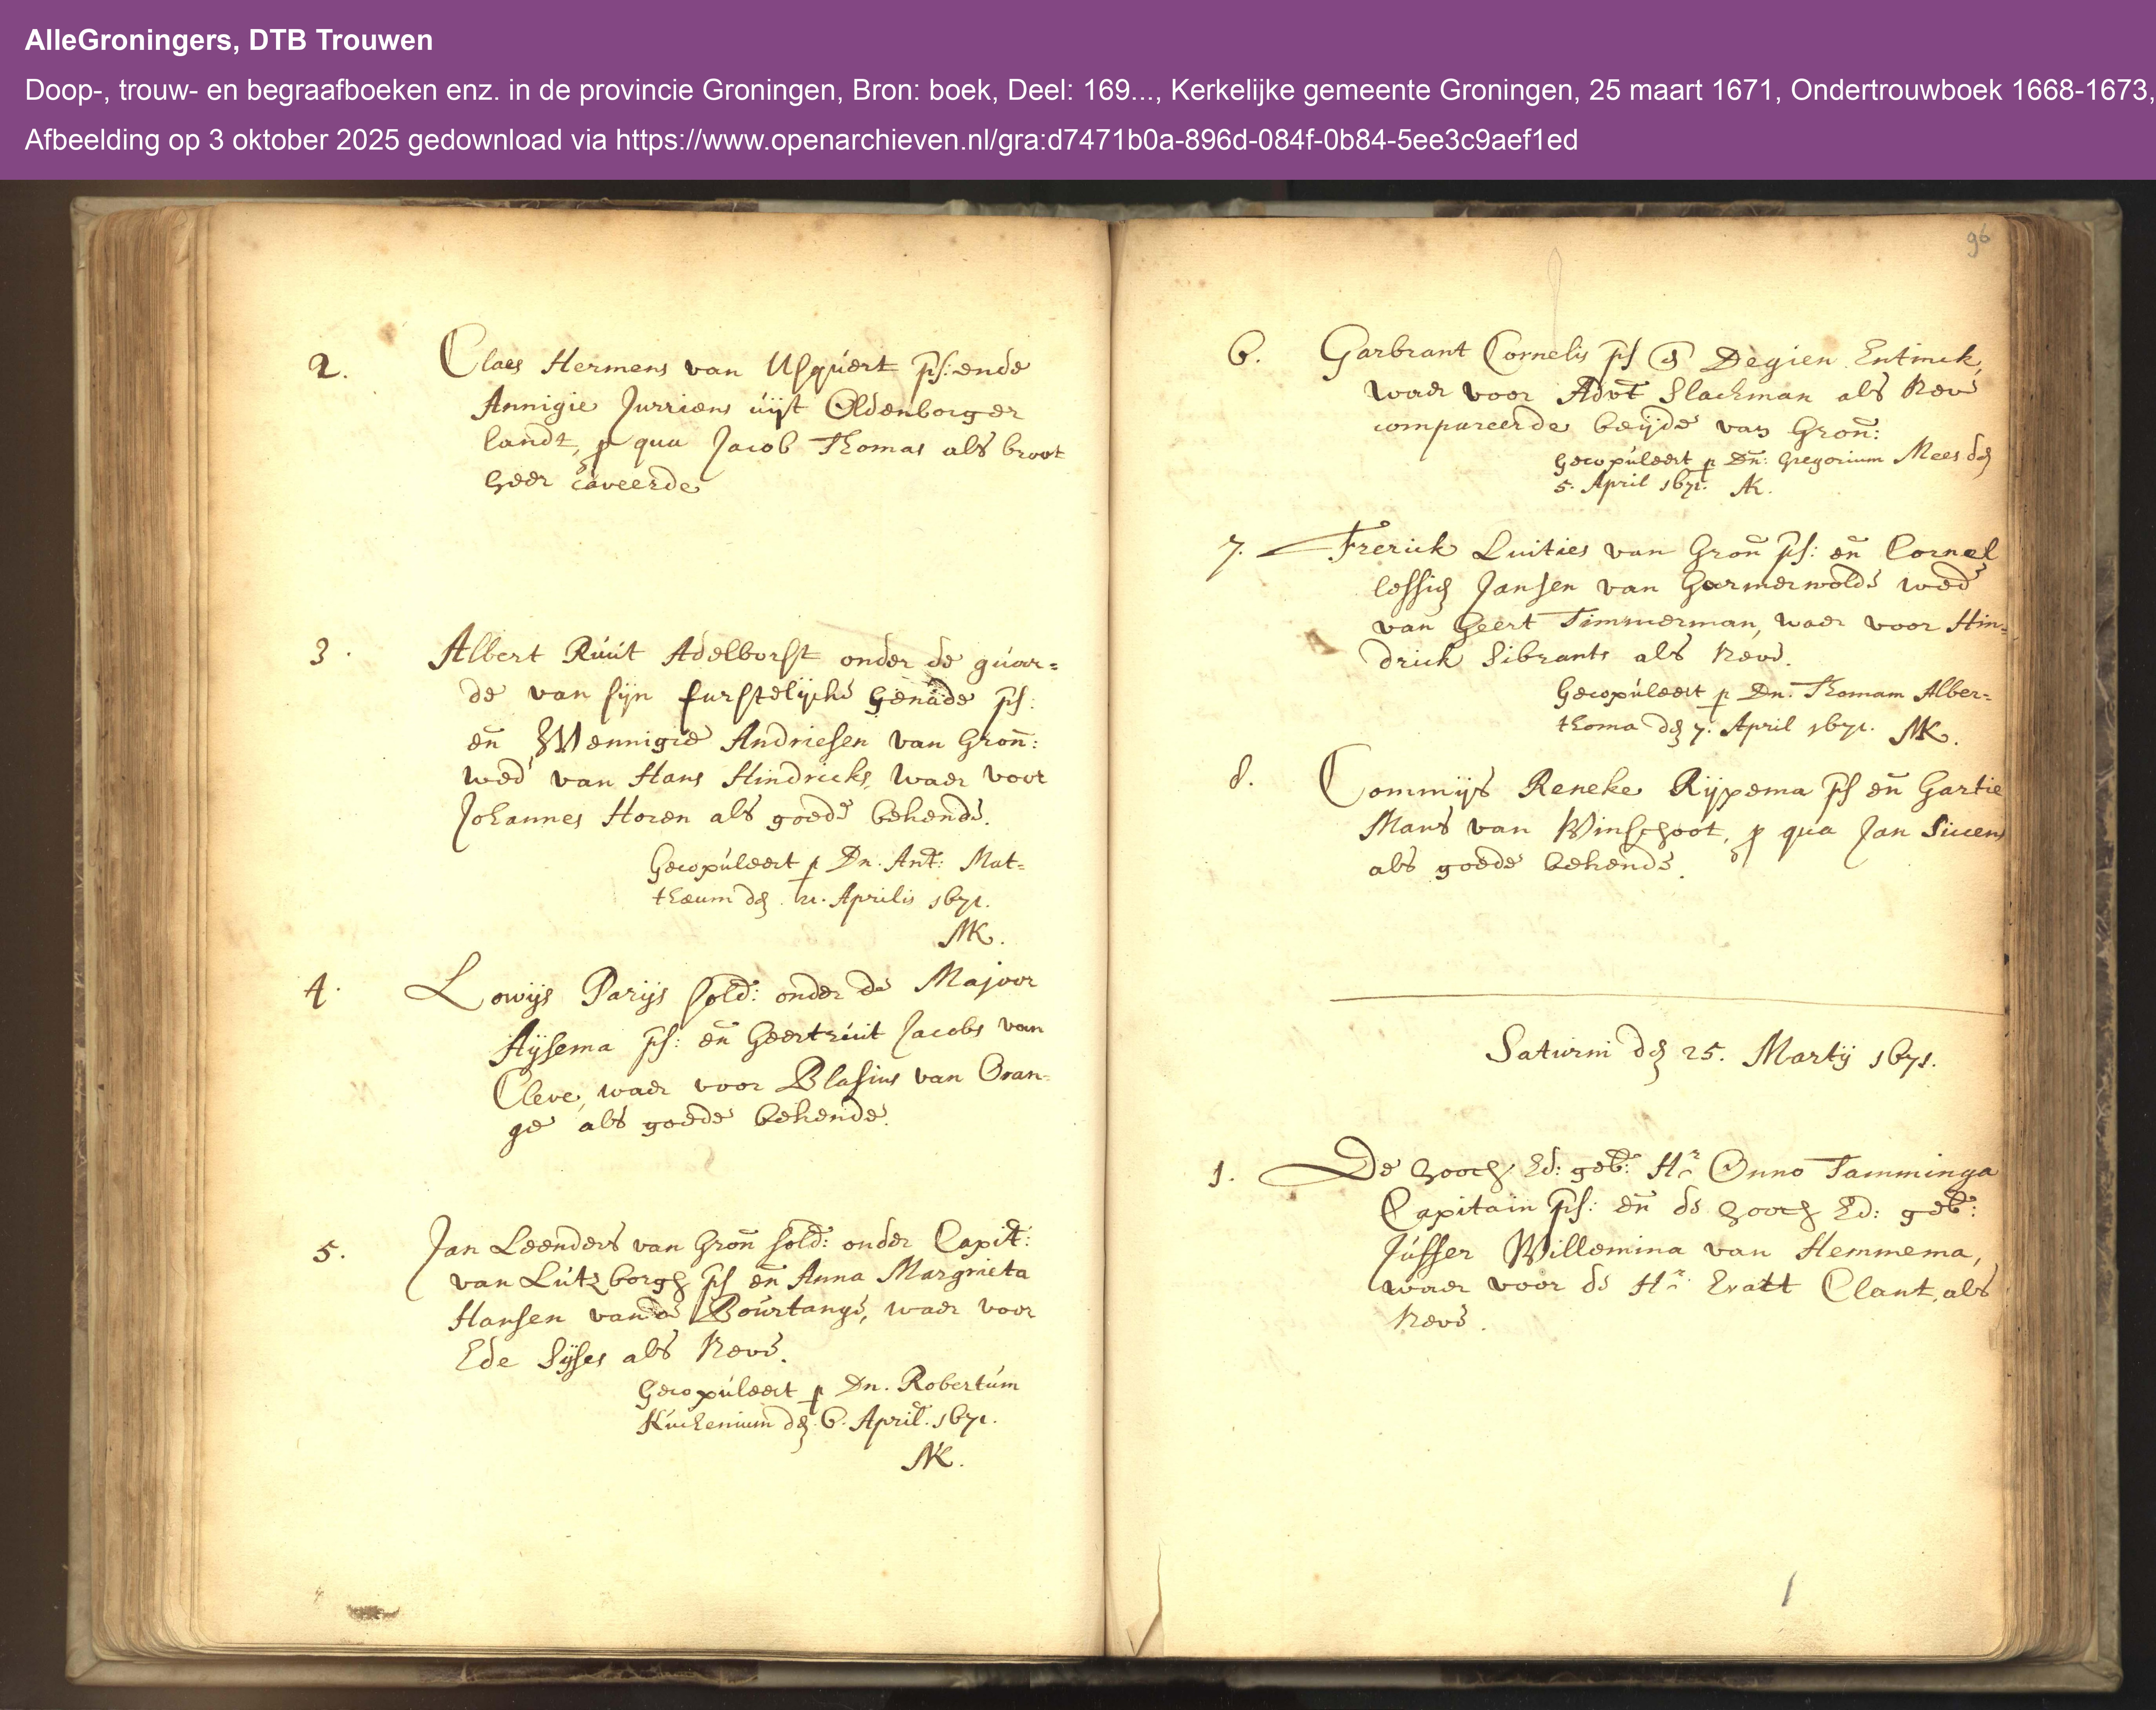 AlleGroningers, DTB Trouwen
Doop-, trouw- en begraafboeken enz. in de provincie Groningen, Bron: boek, Deel: 169..., Kerkelijke gemeente Groningen, 25 maart 1671, Ondertrouwboek 1668-1673,
Afbeelding op 3 oktober 2025 gedownload via https://www.openarchieven.nl/gra:d7471b0a-896d-084f-0b84-5ee3c9aef1ed
2. Claes Hermens van Usquert ps: ende
Annigie Jurriens uijt Oldenborger
landt, p qua Jacob Thomas als broot
heer caveerde
3. Albert Ruut Adelborst onder de guar=
de van sijn furstelijcke Genade ps:
en Wennigie Andriesen van Gron:
wed van Hans Hindricks, waer voor
Johannes Horen als goede bekende.
Gecopuleert p Dn. Ant: Mat=
thaeum den 21. Aprilis 1671.
MK.
4. Lowijs Parijs sold: onder de Majoor
Aijsema ps: en Geertruit Jacobs van
Cleve, waer voor Blasius van Oran=
ge als goede bekende.
5. Jan Leenders van Gron sold: onder Capit:
van Lutzborgh ps en Anna Margrieta
Hansen vande Bourtange, waer voor
Ede Sijses als Neve.
Gecopuleert p Dn. Robertum
Kuchenium den 6. April. 1671.
MK.
96
6. Garbrant Cornelis ps & Degien Entinck,
waer voor Advt Slachman als Neve
compareerde beijde van Gron:
Gecopuleert p Dn: Gregorium Mees den
5. April 1671. MK.
7. Frerick Luities van Gron ps: en Cornel
lessien Jansen van Garmerwolde wed
van Geert Timmerman, waer voor Hin=
drick Sibrants als Neve.
Gecopuleert p Dn. Thomam Alber=
thoma den 7. April 1671. MK.
8. Commijs Reneke Rijpema ps en Gartie
Mans van Winschoot, p qua Jan Siccens
als goede bekende.
Saturni den 25. Martij 1671.
1. De hooch Ed: geb: Hr Onno Tamminga
Capitain ps: en de hooch Ed: geb:
Juffer Willemina van Hemmema,
waer voor de Hr Evatt Clant, als
Neve.